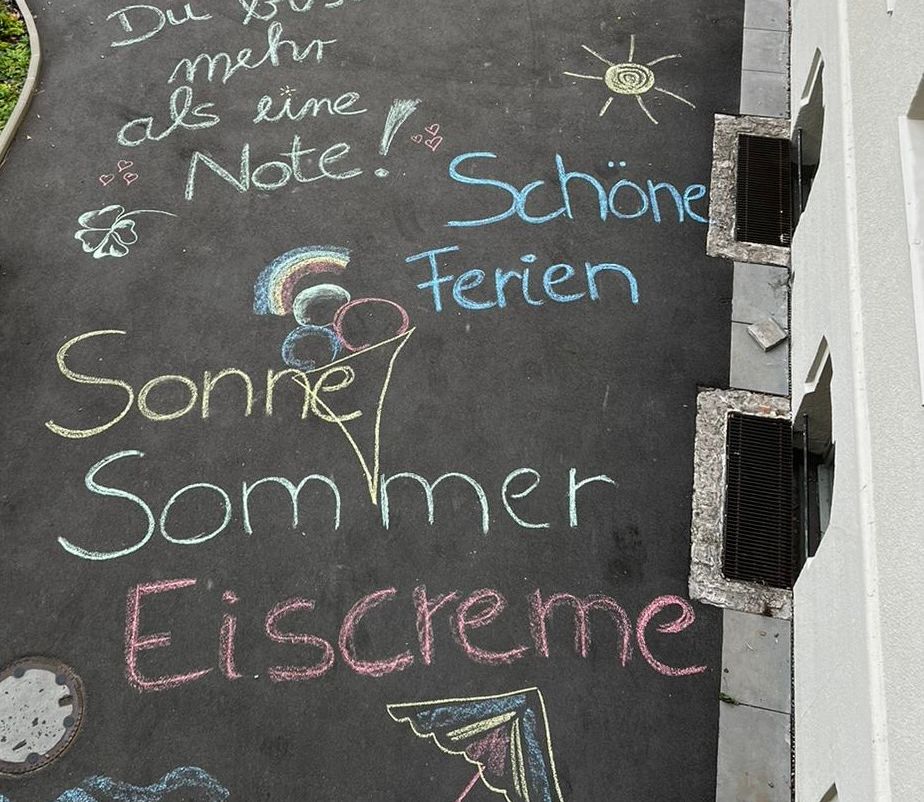 Du bist
mehr
als eine
Note!
Schöne
Ferien
Sonne
Sommer
Eiscreme